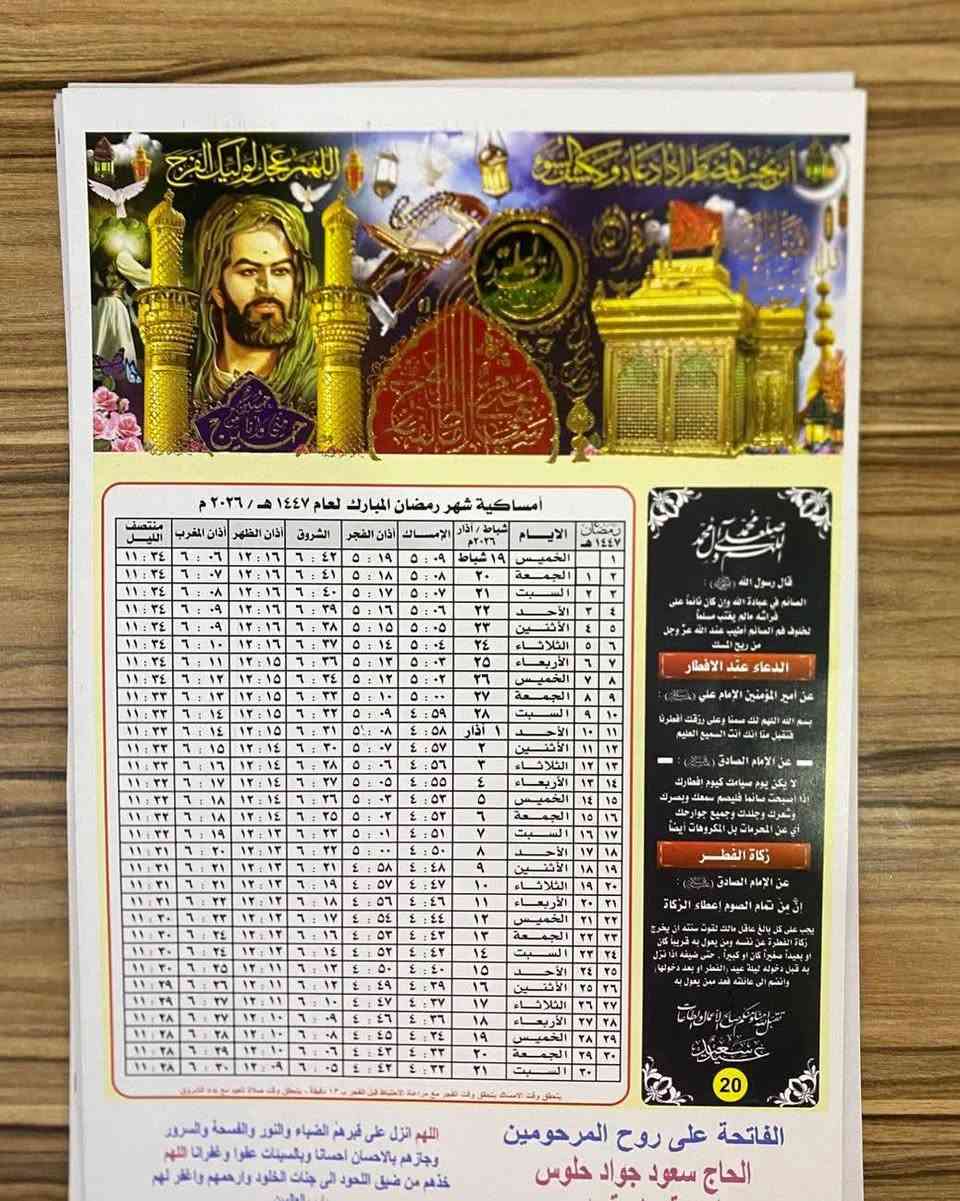 أمن يجيب المضطر إذا دعاه ويكشف السوء
اللهم عجل لوليك الفرج
أمساكية شهر رمضان المبارك لعام ١٤٤٧ هـ / ٢٠٢٦ م
رمضان ١٤٤٧ هـ الايام شباط / أذار ٢٠٢٦م الإمساك أذان الفجر الشروق أذان الظهر أذان المغرب منتصف الليل
١ الخميس ١٩ شباط ٥:٠٩ ٥:١٩ ٦:٤٢ ١٢:١٦ ٦:٠٦ ١١:٣٤
٢ ١ الجمعة ٢٠ ٥:٠٨ ٥:١٨ ٦:٤١ ١٢:١٦ ٦:٠٧ ١١:٣٤
٣ ٢ السبت ٢١ ٥:٠٧ ٥:١٧ ٦:٤٠ ١٢:١٦ ٦:٠٨ ١١:٣٤
٤ ٣ الأحد ٢٢ ٥:٠٦ ٥:١٦ ٦:٣٩ ١٢:١٦ ٦:٠٩ ١١:٣٤
٥ ٤ الأثنين ٢٣ ٥:٠٥ ٥:١٥ ٦:٣٨ ١٢:١٦ ٦:٠٩ ١١:٣٤
٦ ٥ الثلاثاء ٢٤ ٥:٠٤ ٥:١٤ ٦:٣٧ ١٢:١٦ ٦:١٠ ١١:٣٤
٧ ٦ الأربعاء ٢٥ ٥:٠٣ ٥:١٣ ٦:٣٦ ١٢:١٥ ٦:١١ ١١:٣٤
٨ ٧ الخميس ٢٦ ٥:٠٢ ٥:١٢ ٦:٣٤ ١٢:١٥ ٦:١٢ ١١:٣٤
٩ ٨ الجمعة ٢٧ ٥:٠٠ ٥:١٠ ٦:٣٣ ١٢:١٥ ٦:١٣ ١١:٣٣
١٠ ٩ السبت ٢٨ ٤:٥٩ ٥:٠٩ ٦:٣٢ ١٢:١٥ ٦:١٤ ١١:٣٣
١١ ١٠ الأحد ١ أذار ٤:٥٨ ٥:٠٨ ٦:٣١ ١٢:١٥ ٦:١٤ ١١:٣٣
١٢ ١١ الأثنين ٢ ٤:٥٧ ٥:٠٧ ٦:٣٠ ١٢:١٥ ٦:١٥ ١١:٣٣
١٣ ١٢ الثلاثاء ٣ ٤:٥٦ ٥:٠٦ ٦:٢٨ ١٢:١٤ ٦:١٦ ١١:٣٣
١٤ ١٣ الأربعاء ٤ ٤:٥٥ ٥:٠٥ ٦:٢٧ ١٢:١٤ ٦:١٧ ١١:٣٢
١٥ ١٤ الخميس ٥ ٤:٥٣ ٥:٠٣ ٦:٢٦ ١٢:١٤ ٦:١٨ ١١:٣٢
١٦ ١٥ الجمعة ٦ ٤:٥٢ ٥:٠٢ ٦:٢٥ ١٢:١٤ ٦:١٨ ١١:٣٢
١٧ ١٦ السبت ٧ ٤:٥١ ٥:٠١ ٦:٢٣ ١٢:١٣ ٦:١٩ ١١:٣٢
١٨ ١٧ الأحد ٨ ٤:٥٠ ٥:٠٠ ٦:٢٢ ١٢:١٣ ٦:٢٠ ١١:٣١
١٩ ١٨ الأثنين ٩ ٤:٤٨ ٤:٥٨ ٦:٢١ ١٢:١٣ ٦:٢١ ١١:٣١
٢٠ ١٩ الثلاثاء ١٠ ٤:٤٧ ٤:٥٧ ٦:١٩ ١٢:١٣ ٦:٢١ ١١:٣١
٢١ ٢٠ الأربعاء ١١ ٤:٤٦ ٤:٥٦ ٦:١٨ ١٢:١٢ ٦:٢٢ ١١:٣١
٢٢ ٢١ الخميس ١٢ ٤:٤٤ ٤:٥٤ ٦:١٧ ١٢:١٢ ٦:٢٣ ١١:٣٠
٢٣ ٢٢ الجمعة ١٣ ٤:٤٣ ٤:٥٣ ٦:١٦ ١٢:١٢ ٦:٢٤ ١١:٣٠
٢٤ ٢٣ السبت ١٤ ٤:٤٢ ٤:٥٢ ٦:١٤ ١٢:١٢ ٦:٢٤ ١١:٣٠
٢٥ ٢٤ الأحد ١٥ ٤:٤٠ ٤:٥٠ ٦:١٣ ١٢:١١ ٦:٢٥ ١١:٣٠
٢٦ ٢٥ الأثنين ١٦ ٤:٣٩ ٤:٤٩ ٦:١٢ ١٢:١١ ٦:٢٦ ١١:٢٩
٢٧ ٢٦ الثلاثاء ١٧ ٤:٣٧ ٤:٤٧ ٦:١٠ ١٢:١١ ٦:٢٧ ١١:٢٩
٢٨ ٢٧ الأربعاء ١٨ ٤:٣٦ ٤:٤٦ ٦:٠٩ ١٢:١٠ ٦:٢٧ ١١:٢٨
٢٩ ٢٨ الخميس ١٩ ٤:٣٤ ٤:٤٥ ٦:٠٨ ١٢:١٠ ٦:٢٨ ١١:٢٨
٣٠ ٢٩ الجمعة ٢٠ ٤:٣٣ ٤:٤٣ ٦:٠٦ ١٢:١٠ ٦:٢٩ ١١:٢٨
٣٠ السبت ٢١ ٤:٣٢ ٤:٤٢ ٦:٠٥ ١٢:٠٩ ٦:٣٠ ١١:٢٨
اللهم صل على محمد وآل محمد
قال رسول الله :
الصائم في عبادة الله وإن كان نائماً على
فراشه مالم يغتب مسلماً
لخلوف فم الصائم أطيب عند الله عزّ وجل
من ريح المسك
الدعاء عند الافطار
عن أمير المؤمنين الإمام علي :
بسم الله اللهم لك صمنا وعلى رزقك افطرنا
فتقبل منا انك انت السميع العليم
عن الإمام الصادق :
لا يكن يوم صيامك كيوم افطارك
اذا اصبحت صائما فليصم سمعك وبصرك
وشعرك وجلدك وجميع جوارحك
أي عن المحرمات بل المكروهات أيضاً
زكاة الفطر
عن الإمام الصادق :
إنّ مِنْ تمام الصوم إعطاء الزكاة
يجب على كل بالغ عاقل مالك لقوت سنته ان يخرج
زكاة الفطرة عن نفسه ومن يعول به قريباً كان
او بعيداً صغيراً كان او كبيراً ، حتى ضيفه اذا نزل
به قبل دخوله ليلة عيد (الفطر او بعد دخولها)
وانضم الى عائلته فعد ممن يعول به
تقبل الله منا ومنكم صالح الأعمال والطاعات
عيد سعيد
20
الفاتحة على روح المرحومين
الحاج سعود جواد حلوس
اللهم انزل على قبرهم الضياء والنور والفسحة والسرور
وجازهم بالاحسان أحسانا وبالسيئات عفوا وغفرانا اللهم
خذهم من ضيق اللحود الى جنات الخلود وارحمهم واغفر لهم